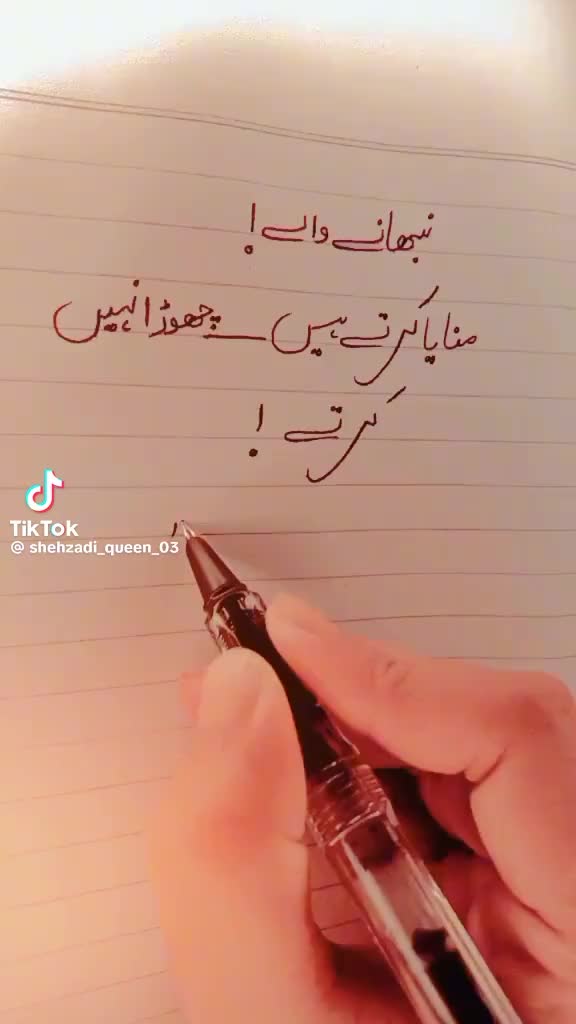 نبھانے والے !
منایا کرتے ہیں چھوڑا نہیں
کرتے !
TikTok
@ shehzadi_queen_03